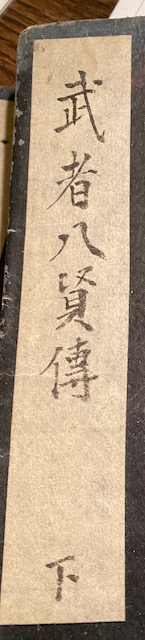 武者八賢傳 下